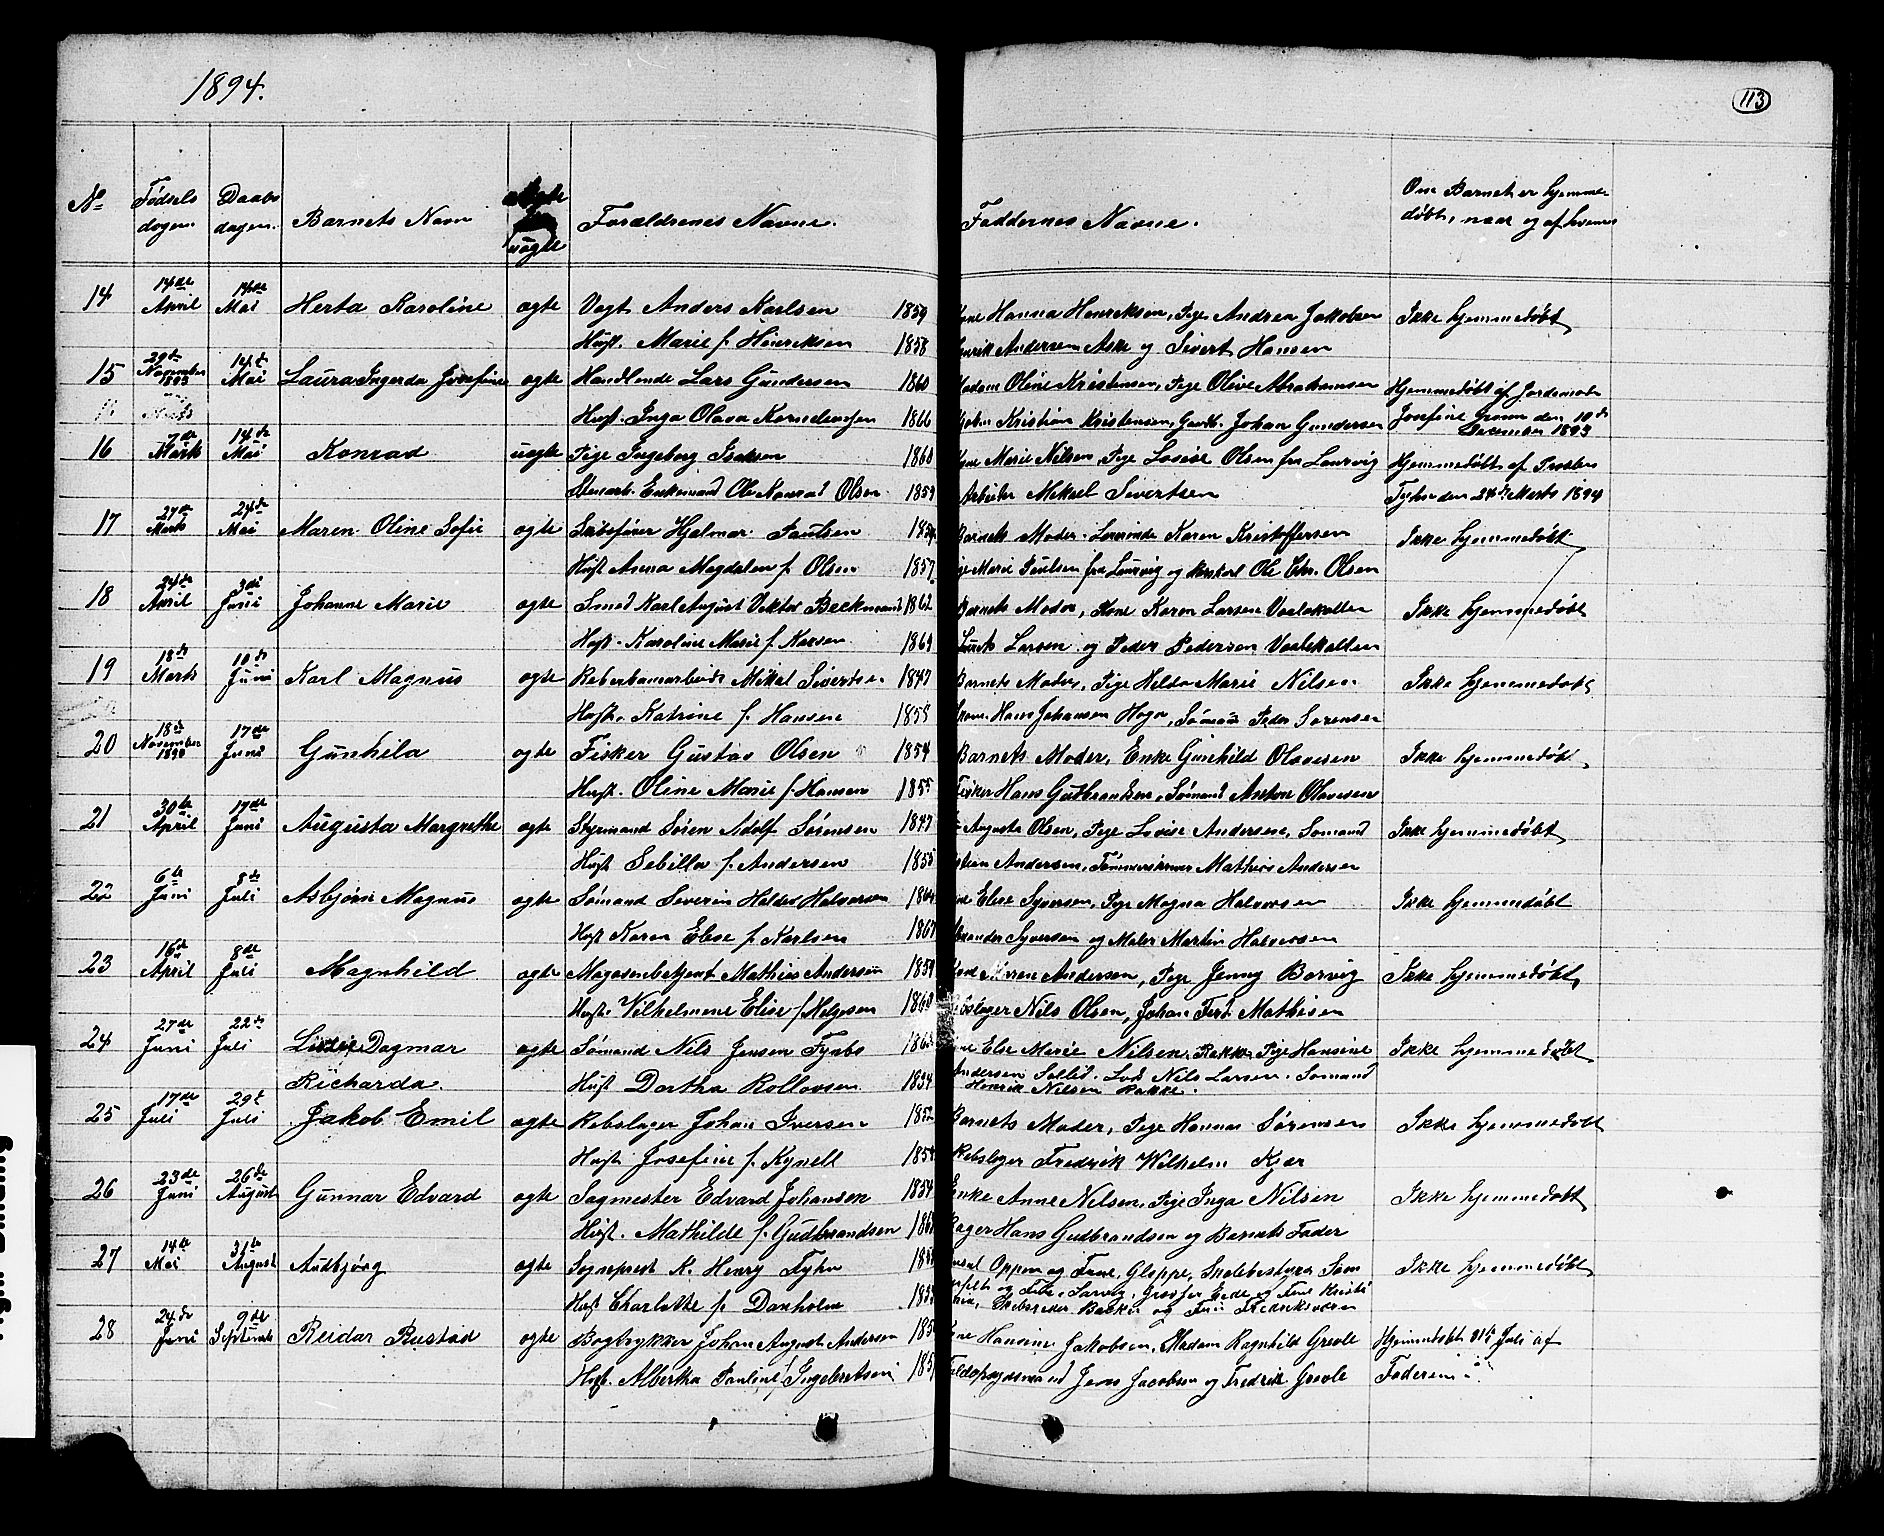 1894.
113
No Fødsels dagen. Daabs dagen. Barnets Navn ægte uægte Forældrenes Navne. Faddernes Navne. Om Barnet er hjemme døbt, naar og af hvem
14 14de April 14de Mai Herta Karoline ægte Vogt Anders Karlsen 1859 Hanna Henriksen, Pige Andrea Jakobsen Ikke hjemmedøbt
Hust. Marie f. Henriksen 1858 Andersen Aske og Sivert Hansen
15 29de November 1893 14de Mai Laura Ingerda Josefine ægte Handlende Lars Gundersen 1860 Madam Oline Kristensen, Pige Olive Abrahamsen Hjemmedøbt af Jordemoder
Hust. Inga Olava Korneliussen 1866 Kristian Kristensen, Johan Gundersen Josefine den 10de December 1893
16 7de Marts 14de Mai Konrad uægte Pige Ingeborg Isaksen 1860 Marie Nilsen, Pige Lovise Olsen fra Laurvig Hjemmedøbt af Presten
Enkemand Ole Konrad Olsen 1859 Arbeider Mikael Sivertsen Tyhn den 24de Marts 1894
17 27de Marts 24de Mai Maren Oline Sofie ægte Skibsfører Hjalmar Paulsen Barnets Moder, Karen Kristoffersen Ikke hjemmedøbt
Hust Anna Magdalen f. Olsen 1857 Marie Paulsen fra Laurvig og Ole Chr. Olsen
18 24de April 3die Juni Johanne Marie ægte Smed Karl August Viktor Beckmand 1862 Barnets Moder, Kone Karen Larsen Vaalekallen Ikke hjemmedøbt
Hust. Karoline Marie f. Larsen 1869 Larsen og Peder Pedersen Vaalekallen
19 18de Marts 10de Juni Karl Magnus ægte Mikal Sivertsen 1847 Barnets Moder, Pige Hilda Marie Nilsen Ikke hjemmedøbt
Hust. Katrine f. Hansen 1855 Hans Johansen Hoga, Sømand Peder Sørensen
20 18de November 1890 17de Juni Gunhila ægte Fisker Gustav Olsen 1854 Barnets Moder, Enke Gunhild Olavesen Ikke hjemmedøbt
Hust. Oline Marie f. Hansen 1855 Fisker Hans Gudbrandsen, Sømand Anton Olavesen
21 30te April 17de Juni Augusta Margrethe ægte Styrmand Søren Adolf Sørensen 1847 Augusta Olsen, Pige Lovise Andersen, Sømand Ikke hjemmedøbt
Hust Sebilla f. Andersen 1855 Andersen, Tømmermand Mathias Andersen
22 6te Juni 8de Juli Asbjørn Magnus ægte Sømand Severin Haldor Halvorsen Elise Syversen, Pige Magna Halvorsen Ikke hjemmedøbt
Hust Karen Elise f. Karlsen 1867 Syversen og Maler Martin Halvorsen
23 16de April 8de Juli Magnhild ægte Magasinbetjent Mathias Andersen 1859 Maren Andersen, Pige Jenny Borvig Ikke hjemmedøbt
Hust. Vilhelmine Elise f. Helgesen 1860 Nils Olsen, Johan Ferd. Mathisen
24 27de Juni 22de Juli Dagmar ægte Sømand Nils Jensen Fynbo Else Marie Nilsen, Rakke, Pige Hansine Ikke hjemmedøbt
Richarda Hust Dortha Rollovsen 1854 Andersen Lods Nils Larsen. Sømand Henrik Nilsen Rakke.
25 17de Juli 29de Juli Jakob Emil ægte Rebslager Johan Iversen 1852 Barnets Moder, Pige Hanna Sørensen Ikke hjemmedøbt
Hust. Josefine f. Kynell Rebslager Fredrik Wilhelm Kjær
26 23de Juni 26de August Gunnar Edvard ægte Sagmester Edvard Johansen 1854 Enke Anne Nilsen, Pige Inga Nilsen Ikke hjemmedøbt
Hust. Mathilde f. Gudbrandsen Hans Gudbrandsen og Barnets Fader
27 14de Mai 31te August Audbjørg ægte Sogneprest K. Henry Tyhn Oppen og Frue, Gloppe, Skolebestyrer Ikke hjemmedøbt
Hust Charlotte f. Danholm Skibsreder og Frue Fredriksværn
28 24de Juni 9de September Reidar Rustad ægte Bogtrykker Johan August Andersen Hansine Jakobsen, Madam Ragnhild Hjemmedøbt 31te Juli af
Hust. Albertha Pauline f. Ingebretsen Jens Jacobsen og Fredrik Faderen